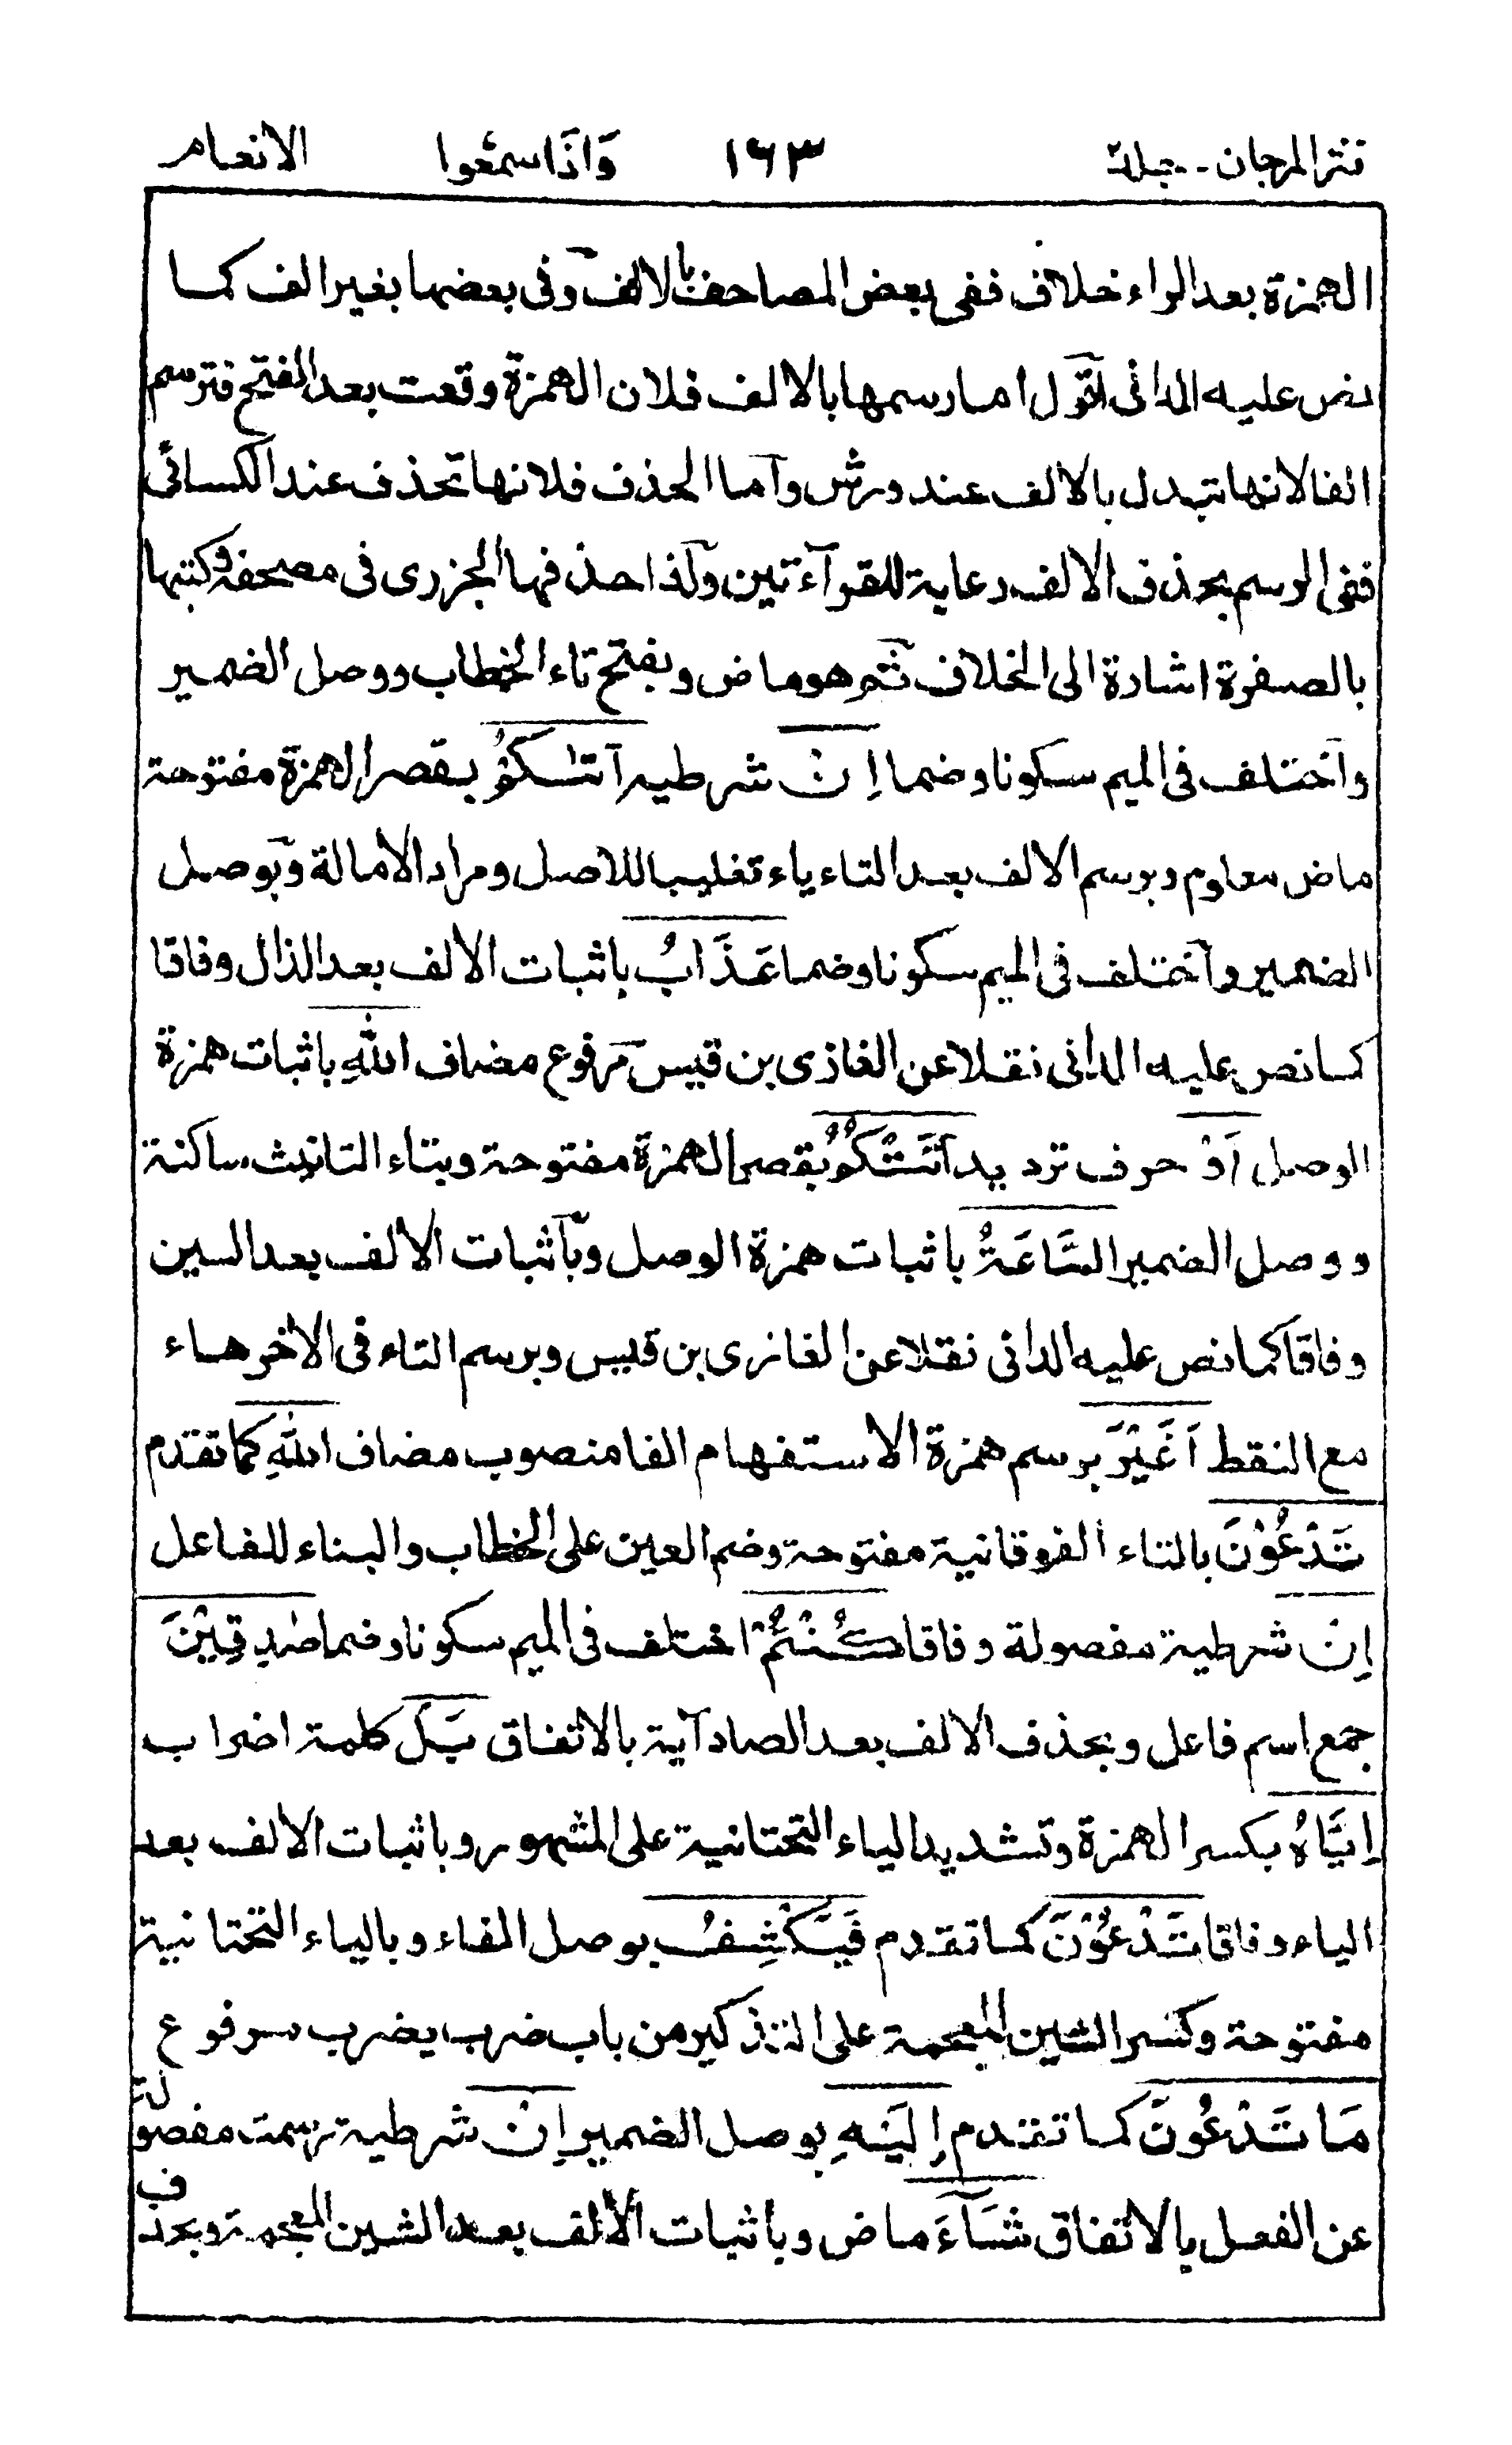 نثر المرجان - جلد٢ ١٦٣ وَاِذَا سمعُوا الانعام
الهمزة بعد الراء خلاف ففى بعض المصاحف بالالف وفى بعضها بغير الف كما
نص عليه الدانى اقول اما رسمها بالالف فلان الهمزة وقعت بعد الفتح فترسم
الفا لانها تبدل بالالف عند ورش واما الحذف فلانها تحذف عند الكسائى
ففى الرسم بحذف الالف رعاية للقرآءتين ولذا حذفها الجزرى فى مصحفه وكتبها
بالصفرة اشارة الى الخلاف ثم هو ماض وبفتح تاء الخطاب ووصل الضمير
واختلف فى الميم سكونا وضما اِنْ شرطيه اَتٰىكُمْ بقصر الهمزة مفتوحة
ماض معلوم وبرسم الالف بعد التاء ياء تغليبا للاصل ومراد الامالة وبوصل
الضمير واختلف فى الميم سكونا وضما عَذَابُ باثبات الالف بعد الذال وفاقا
كما نص عليه الدانى نقلا عن الغازى بن قيس مرفوع مضاف اللهِ باثبات همزة
الوصل اَوْ حرف ترديد اَتَتْكُمُ بقصر الهمزة مفتوحة وبتاء التانيث ساكنة
ووصل الضمير السَّاعَةُ باثبات همزة الوصل وباثبات الالف بعد السين
وفاقا كما نص عليه الدانى نقلا عن الغازى بن قيس وبرسم التاء فى الاخر هاء
مع النقط اَغَيْرَ برسم همزة الاستفهام الفا منصوب مضاف اللهِ كما تقدم
تَدْعُوْنَ بالتاء الفوقانية مفتوحة وضم العين على الخطاب والبناء للفاعل
اِنْ شرطية مفصولة وفاقا كُنْتُمْ اختلف فى الميم سكونا وضما صٰدِقِيْنَ
جمع اسم فاعل وبحذف الالف بعد الصاد آية بالاتفاق بَلْ كلمة اضراب
اِيَّاهُ بكسر الهمزة وتشديد الياء التحتانية على المشهور وباثبات الالف بعد
الياء وفاقا تَدْعُوْنَ كما تقدم فَيَكْشِفُ بوصل الفاء وبالياء التحتانية
مفتوحة وكسر الشين المعجمة على التذكير من باب ضرب يضرب مرفوع
مَا تَدْعُوْنَ كما تقدم اِلَيْهِ بوصل الضمير اِنْ شرطية رسمت مفصولة
عن الفعل بالاتفاق شَآءَ ماض وباثبات الالف بعد الشين المعجمة وبحذف